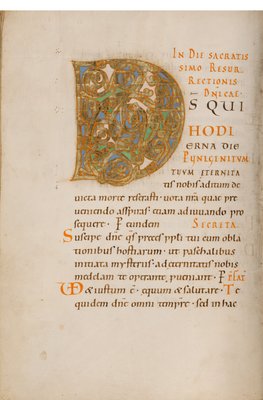 IN DIE SACRATIS
SIMO RESUR
RECTIONIS
DNICAE
D S QUI
HODI
ERNA DIE
P UNIGENITUM
TUUM ETERNITA
tis nobis aditum de
uicta morte reserasti . uota nra que pre
ueniendo aspiras etiam adiuuando pro
sequere . P eundem SECRETA
Suscipe dne qs preces ppli tui cum obla
tionibus hostiarum . ut paschalibus
initiata mysteriis . ad eternitatis nobis
medelam te operante perueniant . P
UD & iustum e . equum & salutare . Te
quidem dne omni tempre . sed in hac